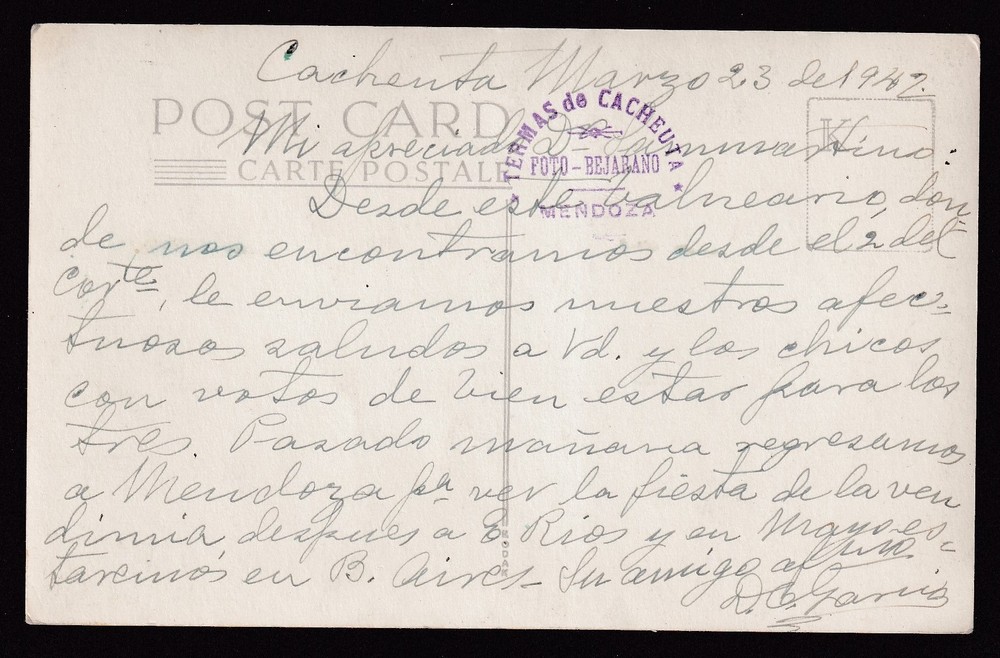 Cacheuta Marzo 23 de 1942.
POST CARD
CARTE POSTALE
TERMAS de CACHEUTA
FOTO-BEJARANO
MENDOZA
K
Mi apreciado Dn Sanmartino
Desde este balneario, don-
de nos encontramos desde el 2 del
corte, le enviamos nuestros afec-
tuosos saludos a Vd. y los chicos
con votos de bien estar para los
tres. Pasado mañana regresamos
a Mendoza pa ver la fiesta de la ven
dimia, despues a E Rios y en Mayo es-
taremos en B. Aires - Su amigo
D. C. Garcia
KODAK